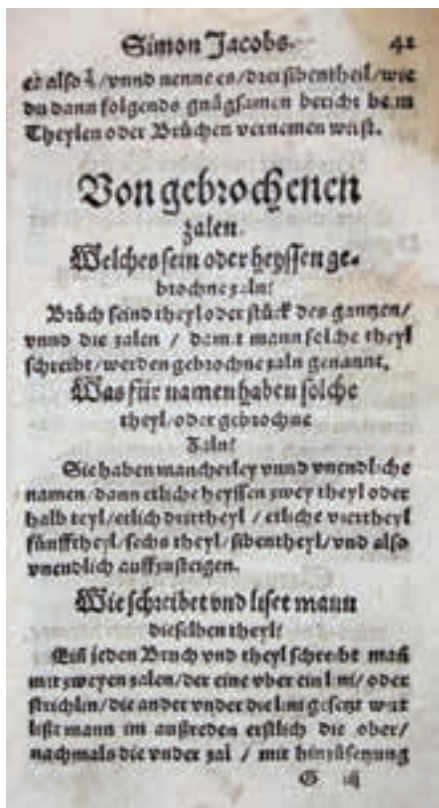 Simon Jacobs. 42
es also 3/7 / vnnd nenne es / drei sibentheil / wie
du dann folgends gnůgsamen bericht beim
Theylen oder Brüchen vernemen wirst.
Von gebrochenen
zalen.
Welches sein oder heyssen ge-
brochne zaln?
Brüch seind theyl oder stück des gantzen /
vnnd die zalen / damit mann solche theyl
schreibt / werden gebrochne zaln genannt.
Was für namen haben solche
theyl / oder gebrochne
Zaln?
Sie haben mancherley vnnd vnendliche
namen / dann etliche heyssen zwey theyl oder
halb teyl / etlich drittheyl / etliche viertheyl
fünfftheyl / sechs theyl / sibentheyl / vnd also
vnendlich auffzusteigen.
Wie schreibet vnd liset mann
dieselben theyl?
Ein jeden Bruch vnd theyl schreibt mañ
mit zweyen zalen / der eine vber ein lini / oder
strichlin / die ander vnder die lini gesetzt wirt
lißt mann im außreden erstlich die ober /
nachmals die vnder zal / mit hinzůsetzung
G ij